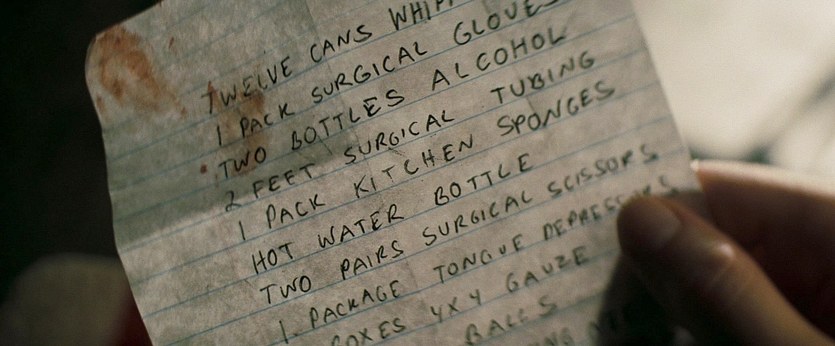 TWELVE CANS
1 PACK SURGICAL GLOVES
TWO BOTTLES ALCOHOL
2 FEET SURGICAL TUBING
1 PACK KITCHEN SPONGES
HOT WATER BOTTLE
TWO PAIRS SURGICAL SCISSORS
1 PACKAGE TONGUE DEPRESSORS
BOXES 4X4 GAUZE
BALLS